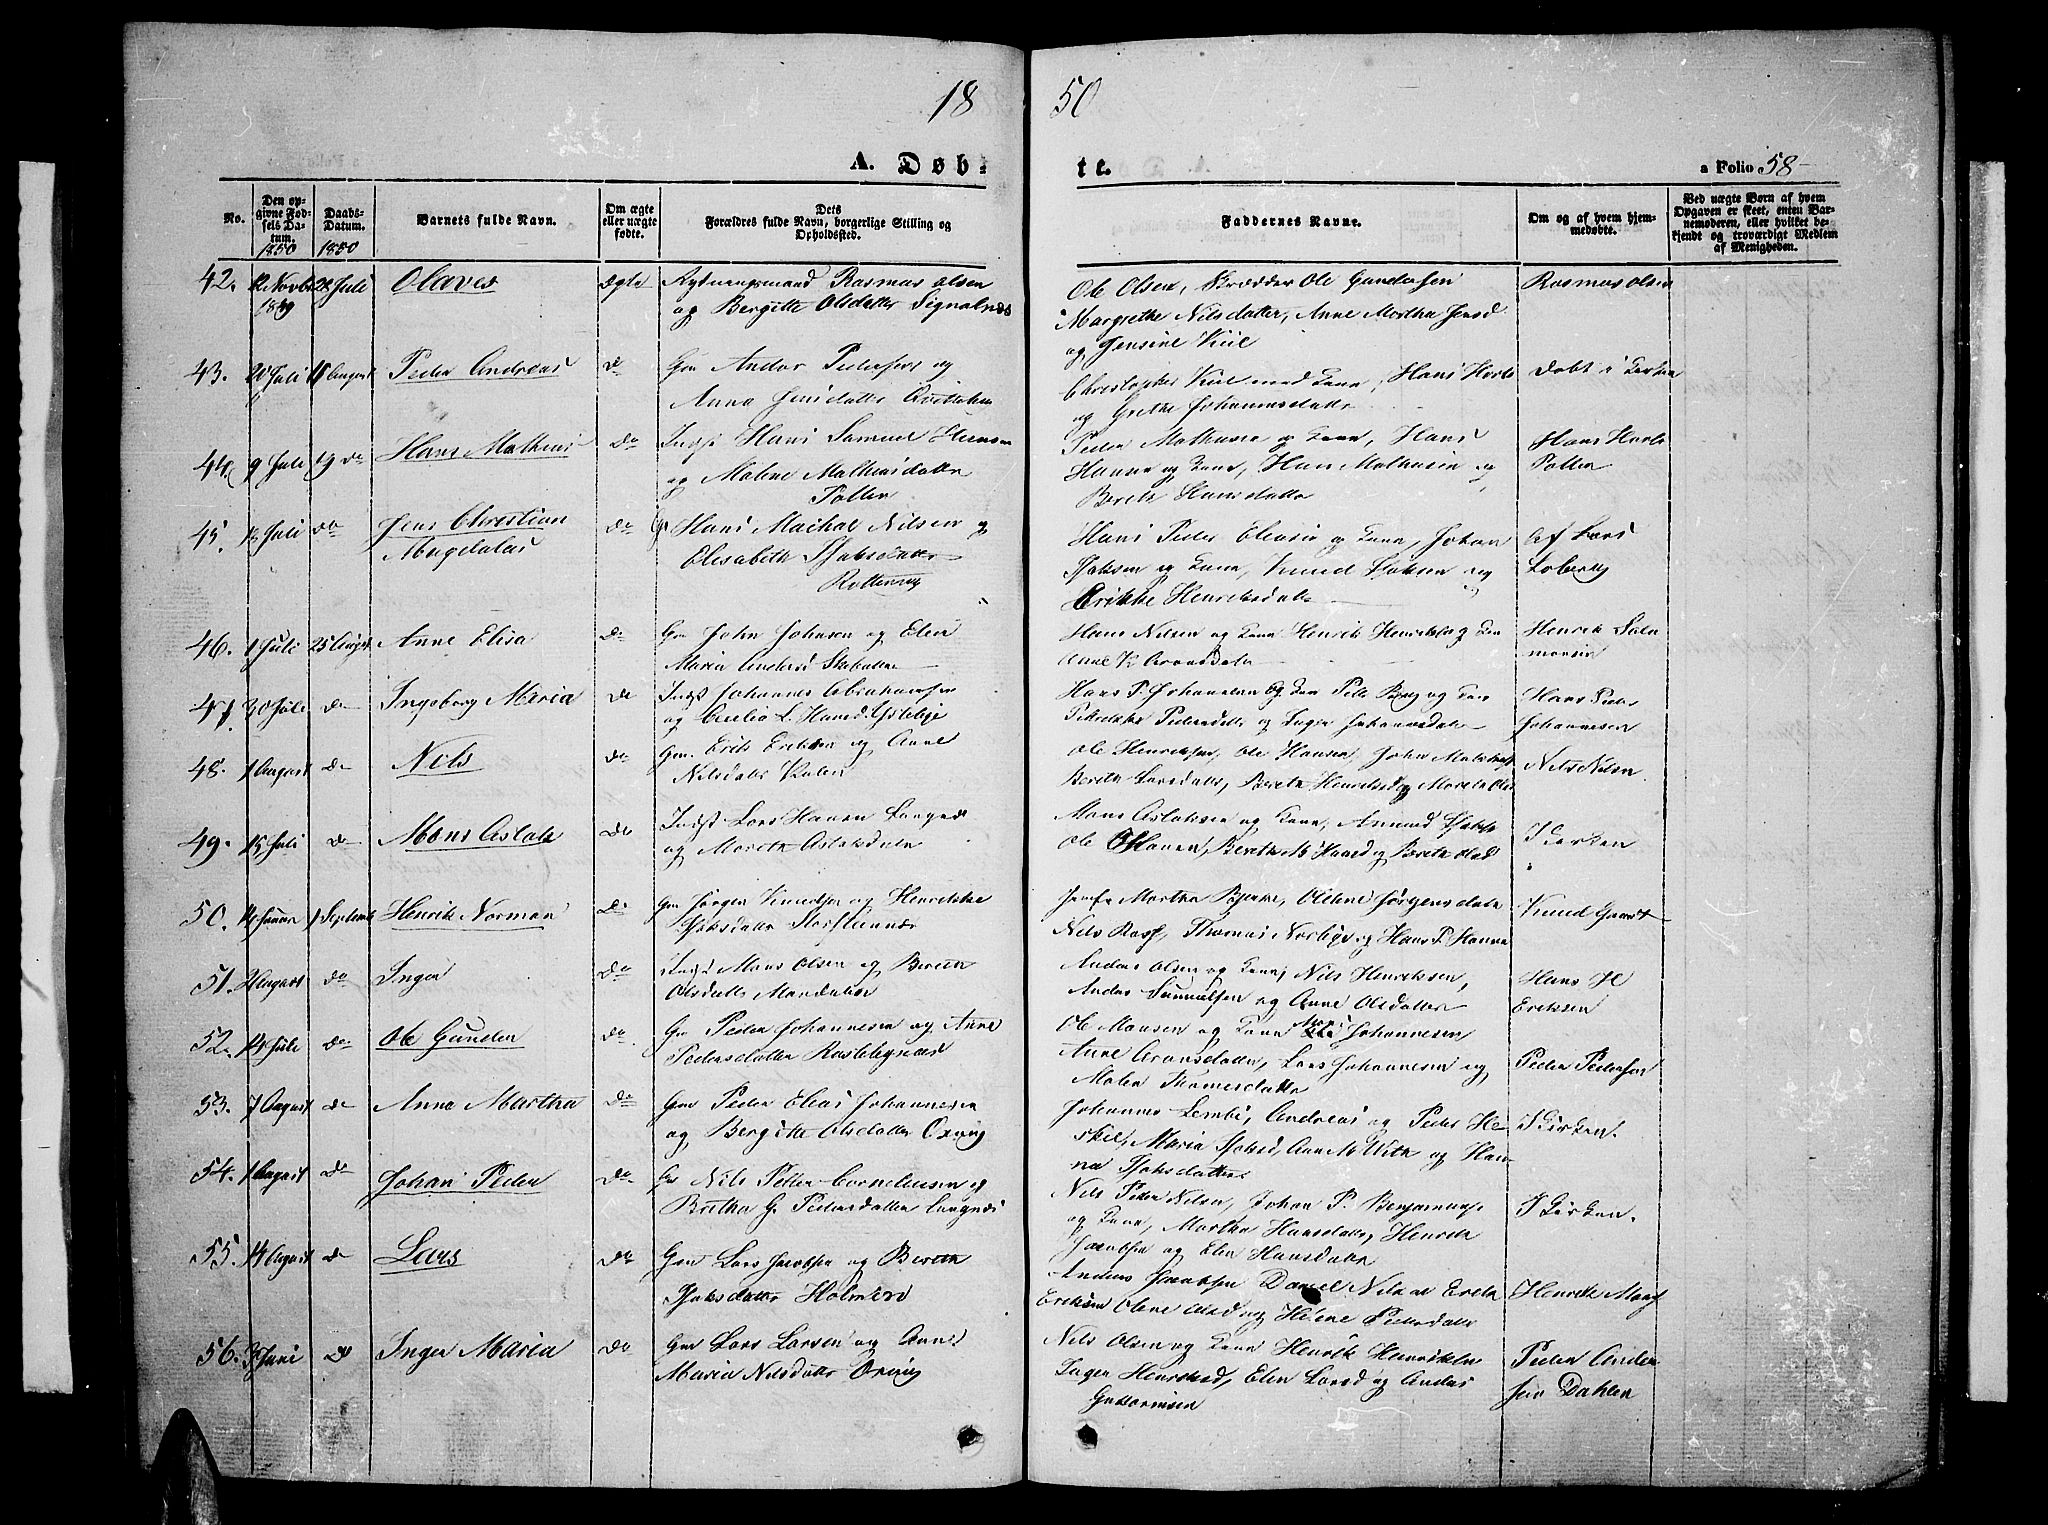 18 50
A. Døb- te.
a Folio 58
No.
Den opgivne Fødsels Datum. 1850
Daabs-Datum. 1850
Barnets fulde Navn.
Om ægte eller uægte fødte.
Dets Forældres fulde Navn, borgerlige Stilling og Opholdsted.
Faddernes Navne.
Om og af hvem hjemmedøbte.
Ved uægte Børn af hvem Opgaven er skeet, enten Barnemoderen, eller hvilket bekjendt og troværdigt Medlem af Menigheden.
42. 12 Novbr 1849 28 Juli Olaves ægte Rydningsmand Rasmus Olsen
og Bergitte Olsdatter Signalnes
Ole Olsen, Skrædder Ole Gundersen
Margrethe Nilsdatter, Anne Martha Jensd
og Jensine Kiil
Rasmus Olsen
43. 20 Juli 18 August Peder Andreas do Gm Anders Pedersen og
Anna Jensdatter
Christopher Kiil med Kone, Hans Horle
og Grethe Johannesdatter
Døbt i Kirken
44. 9 Juli 19 do Hans Mathias do Indst Hans Samuel Hansen
og Malene Mathiasdatter
Pollen
Peder Mathisen og Kone, Hans
Hanne og Kone, Hans Mathisen og
Bereth Hansdatter
Hans Horle
Pollen
45. 18 Juli do Jens Christian
Magdalus
do Gm Hans Michal Nilsen og
Elisabeth Isaksdatter
Hans Peder Eliasen og Kone, Johan
Isaksen og Kone, Knud Isaksen og
Erikke Henriksdatter
Af Lars
Loberg
46. 1 Juli 25 August Anne Elisa do Gm John Johnsen og Elen
Maria Andersd
Hans Nilsen og Kone Henrik Henriksen og Kone
Anne K Aronsdatter
Henrik Salamonsen
47. 30 Juli do Ingeborg Maria do Indst Johannes Abrahamsen
og Cecilia L. Hansd
Hans P. Johannesen og Kone Peder Berg og Kone
Pedersdatter og Inger Johannesdatter
Hans Peder
Johannesen
48. 1 August do Nils do Gm Erik Eriksen og Anne
Nilsdatter
Ole Henriksen, Ole Hansen, John
Bereth Larsdatter, Bereth Henriksd og Mareth Ols
Nils Nilsen
49. 15 Juli do Mons Aslak do Indst Lars Hansen Langnes
og Mareth Aslaksdatter
Mons Aslaksen og Kone, Amund Isaksen
Ole O Hansen, Bereth M Hansd og Bereth Olsd
I Kirken
50. 14 Januar 1 September Henrik Norman do Gm Jørgen Knudsen og Henrikke
Isaksdatter Storsteennes
Jomfr Martha Bjerke, Oline Jørgensdatter
Nils Rasf, Thomas Norbye og Hans P. Hanse
Knud
51. 2 August do Inger do Indst Mons Olsen og Bereth
Olsdatter Mandalen
Anders Olsen og Kone, Nils Henriksen,
Anders Samuelsen og Anne Olsdatter
Hans H
Eriksen
52. 14 Juli do Ole Gunder do Gm Peder Johannesen og Anne
Pedersdatter Rastebynæs
Ole Monsen og Kone Johannesen
Anne Aronsdatter, Lars Johannesen og
Malen Thomasdatter
Peder Pedersen
53. 7 August do Anna Martha do Gm Peder Elias Johannesen
og Bergitte Olsdatter Oxvig
Johannes Lembi, Andreas og Peder Heskil,
Maria Isaksd, Ane M Wik og Hanna
Isaksdatter
I Kirken.
54. 1 August do Johan Peder do Gm Nils Petter Corneliussen og
Bertha G. Pedersdatter Langnes
Nils Peder Nilsen, Johan P. Benjaminsen
og Kone, Martha Hansdatter, Henrik
Jacobsen og Elen Hansdatter
I Kirken.
55. 14 August do Lars do Gm Lars Jacobsen og Bereth
Isaksdatter Holmen
Anders Jacobsen Daniel Nilsen Erik
Eriksen Oline Olsd og Helene Pedersdatter
Henrik Mons
56. 3 Juni do Inger Maria do Gm Lars Larsen og Anne
Maria Nilsdatter Oxvig
Nils Olsen og Kone Henrik Henriksen
Inger Henriksd, Elen Larsd og Anders
Guttormsen
Peder Andersen
Dahlen